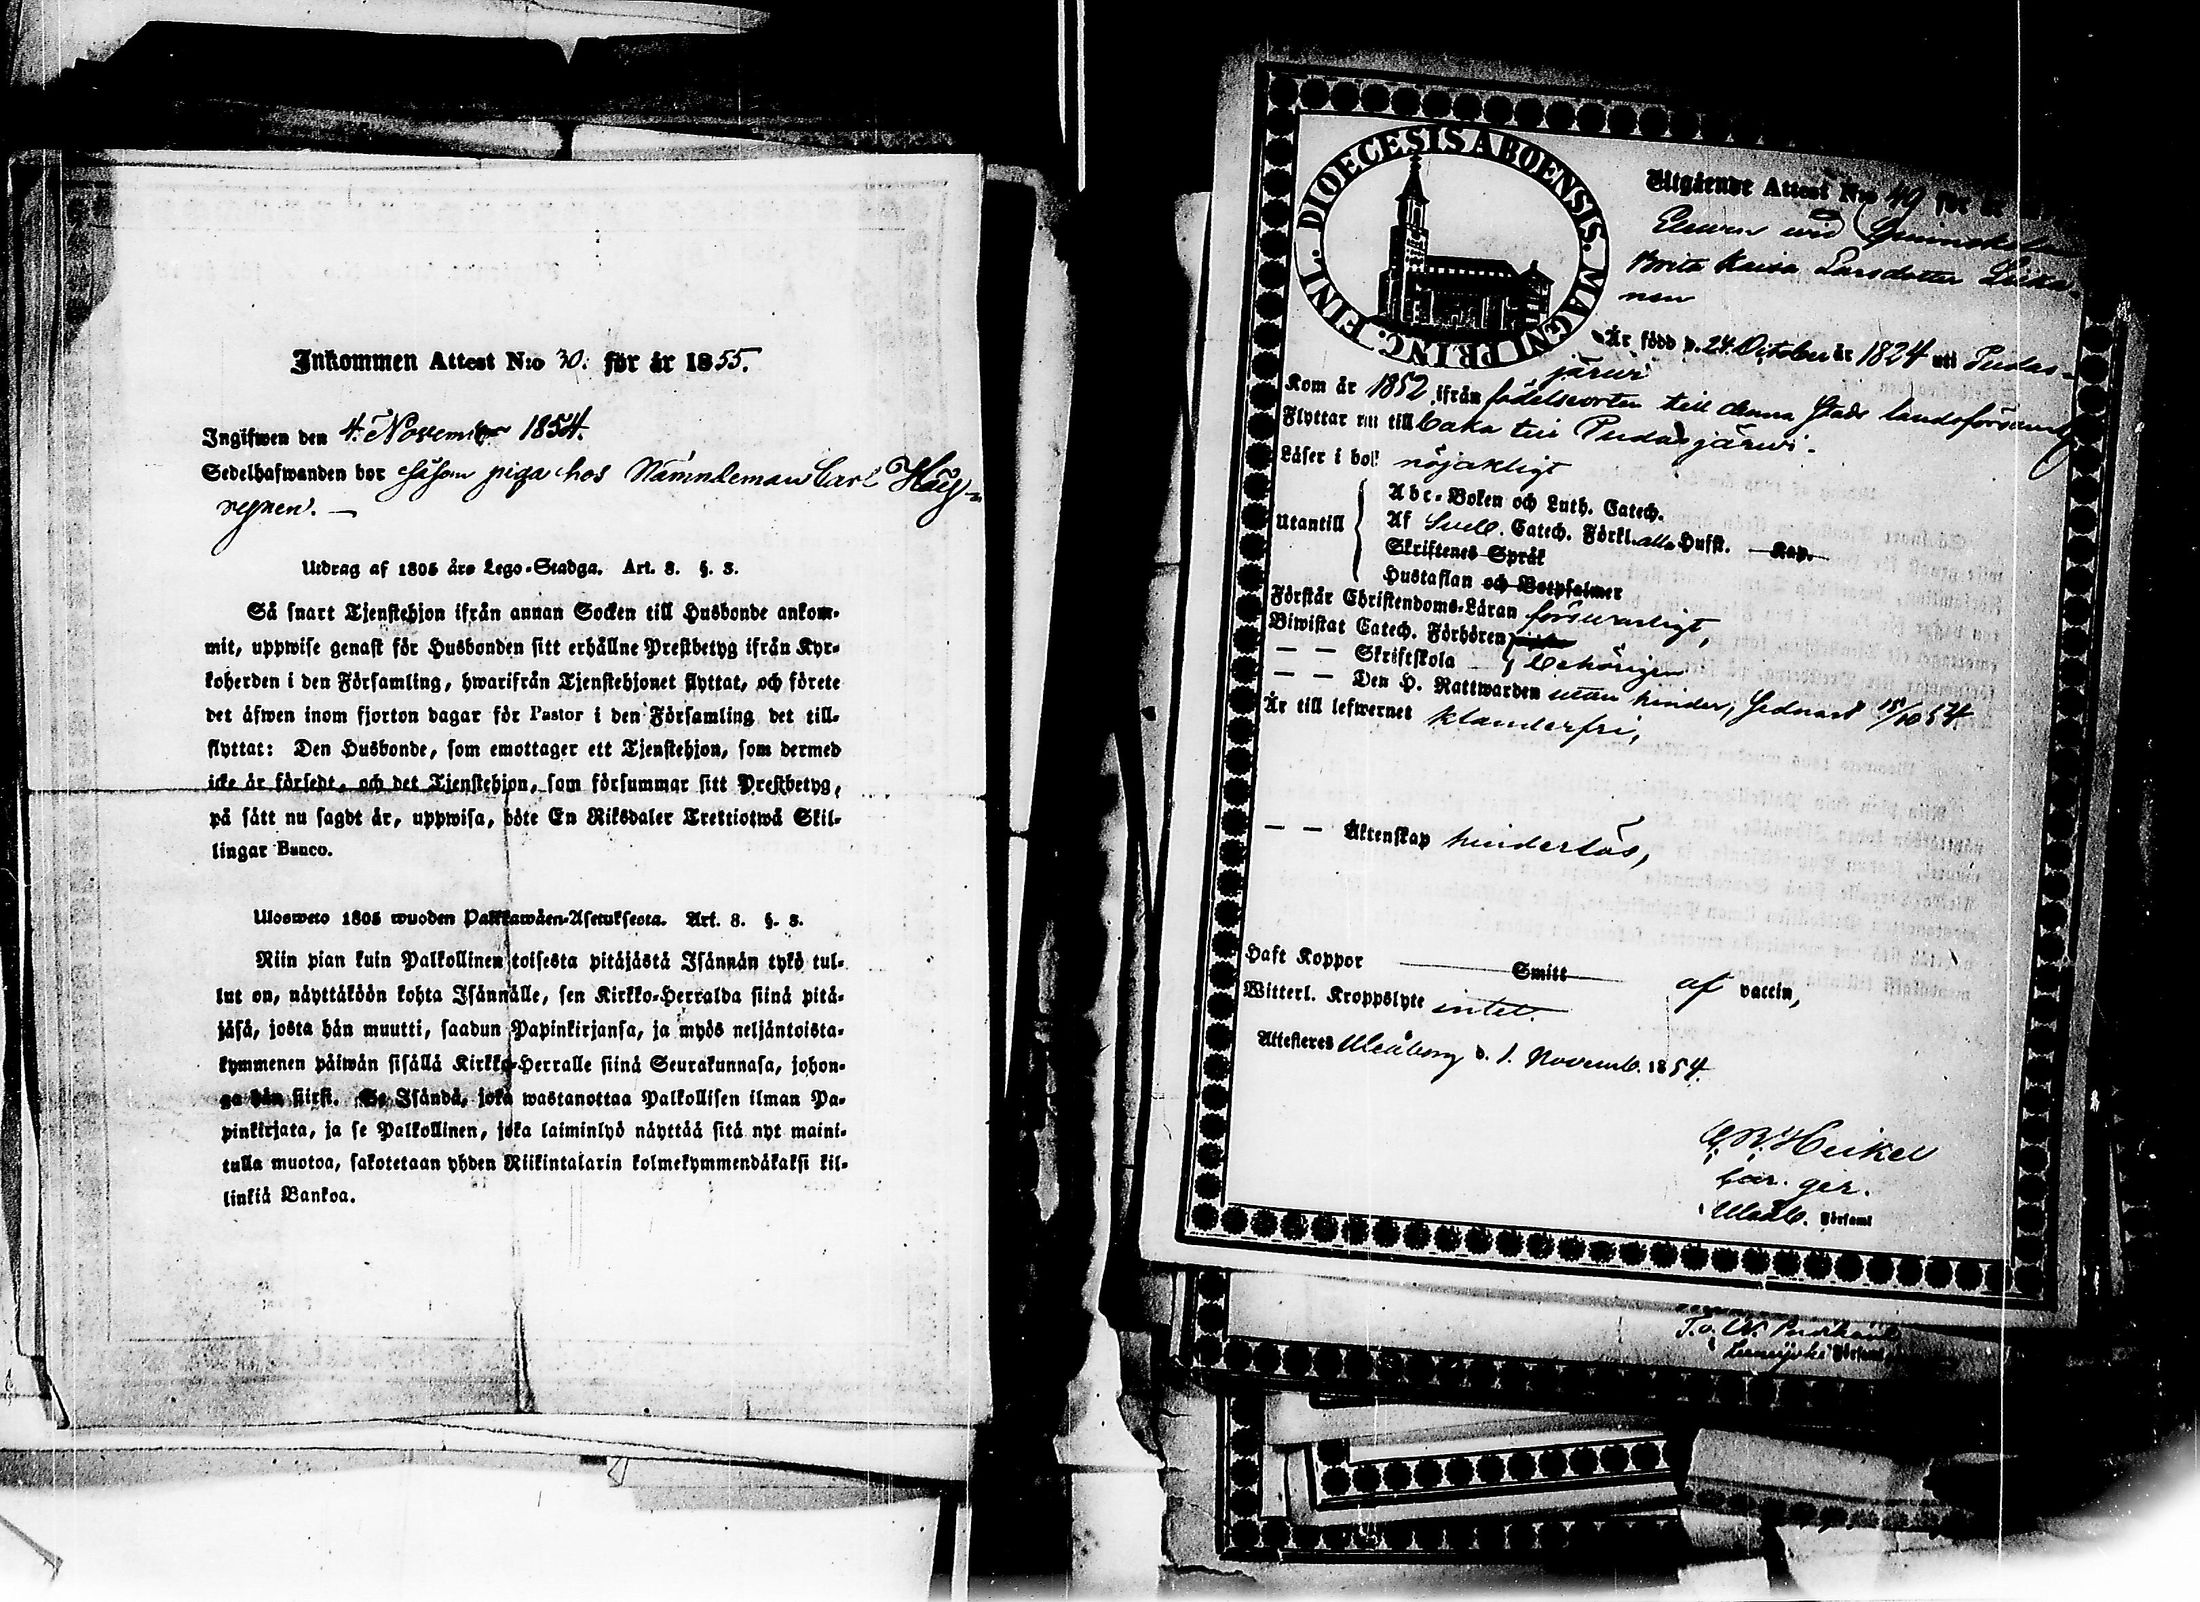 Inkommen Attest N:o 30: för år 1855.
Ingifwen den 4. November 1854.
Sedelhafwanden bor såsom piga hos Nämndeman Carl
Utdrag af 1805 års Lego-Stadga. Art. 8. §. 3.
Så snart Tjenstehjon ifrån annan Socken till Husbonde ankom-
mit, uppwise genast för Husbonden sitt erhållne Prestbetyg ifrån Kyr-
koherden i den Församling, hwarifrån Tjenstehjonet flyttat, och förete
det äfwen inom fjorton dagar för Pastor i den Församling det till-
flyttat: Den Husbonde, som emottager ett Tjenstehjon, som dermed
icke är försedt, och det Tjenstehjon, som försummar sitt Prestbetyg,
på sätt nu sagdt är, uppwisa, böte En Riksdaler Trettiotwå Skil-
lingar Banco.
Ulosweto 1805 wuoden Palkkawäen-Asetuksesta. Art. 8. §. 3.
Niin pian kuin Palkollinen toisesta pitäjästä Isännän tykö tul-
lut on, näyttäköön kohta Isännälle, sen Kirkko-Herralda siinä pitä-
jäsä, josta hän muutti, saadun Papinkirjansa, ja myös neljäntoista-
kymmenen päiwän sisällä Kirkko-Herralle siinä Seurakunnasa, johon-
ga hän siirsi. Se Isändä, joka wastanottaa Palkollisen ilman Pa-
pinkirjata, ja se Palkollinen, joka laiminlyö näyttää sitä nyt maini-
tulla muotoa, sakotetaan yhden Riikintalarin kolmekymmendäkaksi kil-
linkiä Bankoa.
DIOECESIS ABOENSIS. MAGNI PRINC. FINL.
Utgående Attest N:o 49 för år
wid
Brita Kaisa Larsdotter
nen
Är född d. 24. October år 1824 uti Pudas-
järwi
Kom år 1852 ifrån födelseorten till denna Stads landsförsaml
Flyttar nu till baka till Pudasjärwi.
Läser i bok nöjaktigt
Utantill
Abc-Boken och Luth. Catech.
Af Sveb. Catech. Förkl. alla Hufst. Kap.
Skriftenes Språk
Hustaflan och Botpsalmer
Förstår Christendoms-Läran försvarligt,
Biwistat Catech. Förhören
— — Skriftskola behörigen
— — Den H. Nattwarden utan hinder, sednast 15/10 54.
Är till lefwernet klanderfri,
— — Äktenskap hinderlös,
Haft Koppor Smitt af vaccin,
Witterl. Kroppslyte intet.
Attesteres Uleåborg d. 1. Novemb. 1854.
Heikel
Uleåb. Församl
T.o.
Församl